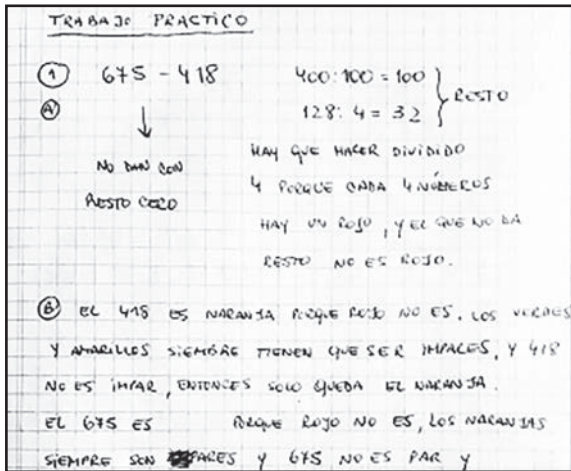 TRABAJO PRACTICO
① 675 - 418
Ⓐ
NO DAN CON
RESTO CERO
400:100 = 100
128: 4 = 32
RESTO
HAY QUE HACER DIVIDIDO
4 PORQUE CADA 4 NÚMEROS
HAY UN ROJO, Y EL QUE NO DA
RESTO NO ES ROJO.
Ⓑ EL 418 ES NARANJA PORQUE ROJO NO ES, LOS VERDES
Y AMARILLOS SIEMPRE TIENEN QUE SER IMPARES, Y 418
NO ES IMPAR, ENTONCES SOLO QUEDA EL NARANJA.
EL 675 ES PORQUE ROJO NO ES, LOS NARANJAS
SIEMPRE SON PARES Y 675 NO ES PAR Y